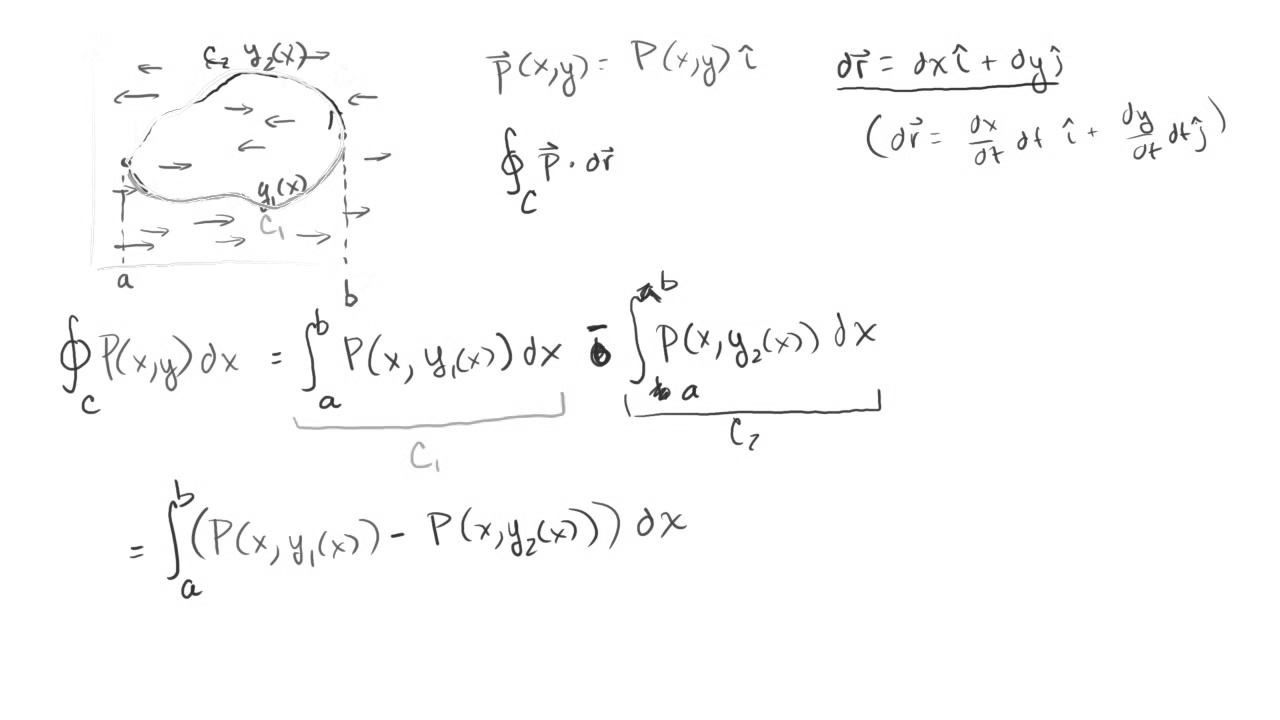 C₂ y₂(x)
y₁(x)
C₁
a b
p⃗(x,y) = P(x,y) î
∮_C p⃗ · dr⃗
dr⃗ = dx î + dy ĵ
(dr⃗ = dx/dt dt î + dy/dt dt ĵ)
∮_C P(x,y) dx = ∫_a^b P(x, y₁(x)) dx − ∫_a^b P(x, y₂(x)) dx
C₁ C₂
= ∫_a^b (P(x, y₁(x)) − P(x, y₂(x))) dx